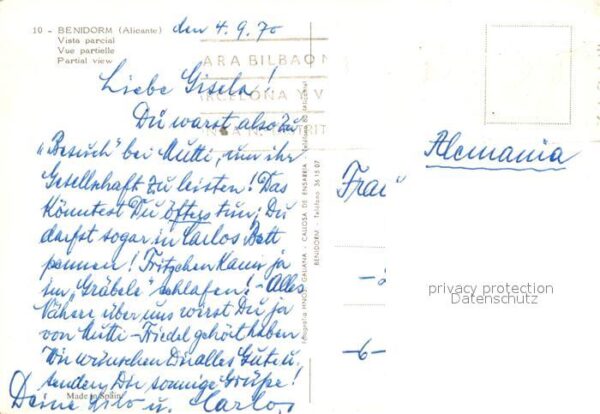 10 - BENIDORM (Alicante)
Vista parcial
Vue partielle
Partial view
den 4.9.70
ARA BILBAO
RCELONA Y V
Liebe Gisela!
Du warst also zu
"Besuch" bei Mutti, um ihr
Gesellschaft zu leisten! Das
könntest Du öfters tun; Du
darfst sogar in Carlos Bett
pennen! Fritzchen kann ja
im "Gräbele" schlafen! - Alles
Nähere über uns wirst Du ja
von Mutti-Friedel gehört haben
Wir wünschen Dir alles Gute u.
senden Dir sonnige Grüße!
Deine Lilo u. Carlos
Made in Spain
Fotografía HNOS. GALIANA - CALLOSA DE ENSARRIA - Teléfono
BENIDORM - Teléfono 36 15 07
Alemania
Frau
-6-
privacy protection
Datenschutz